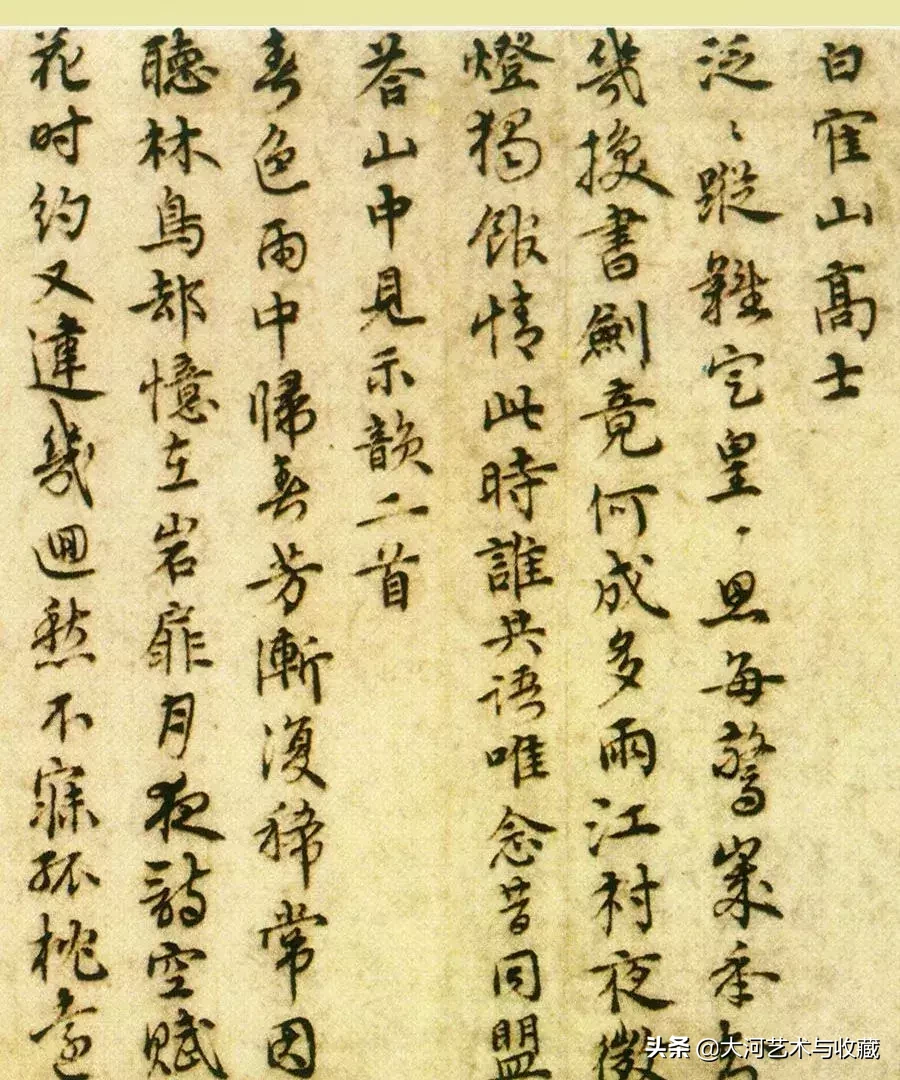 白寉山高士
泛〻蹤難定皇〻思每驚歲年
幾換書劍竟何成多雨江村夜微
燈獨館情此時誰共語唯念昔同盟
荅山中見示韻二首
春色雨中歸春芳漸復稀常因
聽林鳥却憶在岩扉月夜詩空賦
花时約又違幾迴愁不寐孤枕遠
头条 @大河艺术与收藏